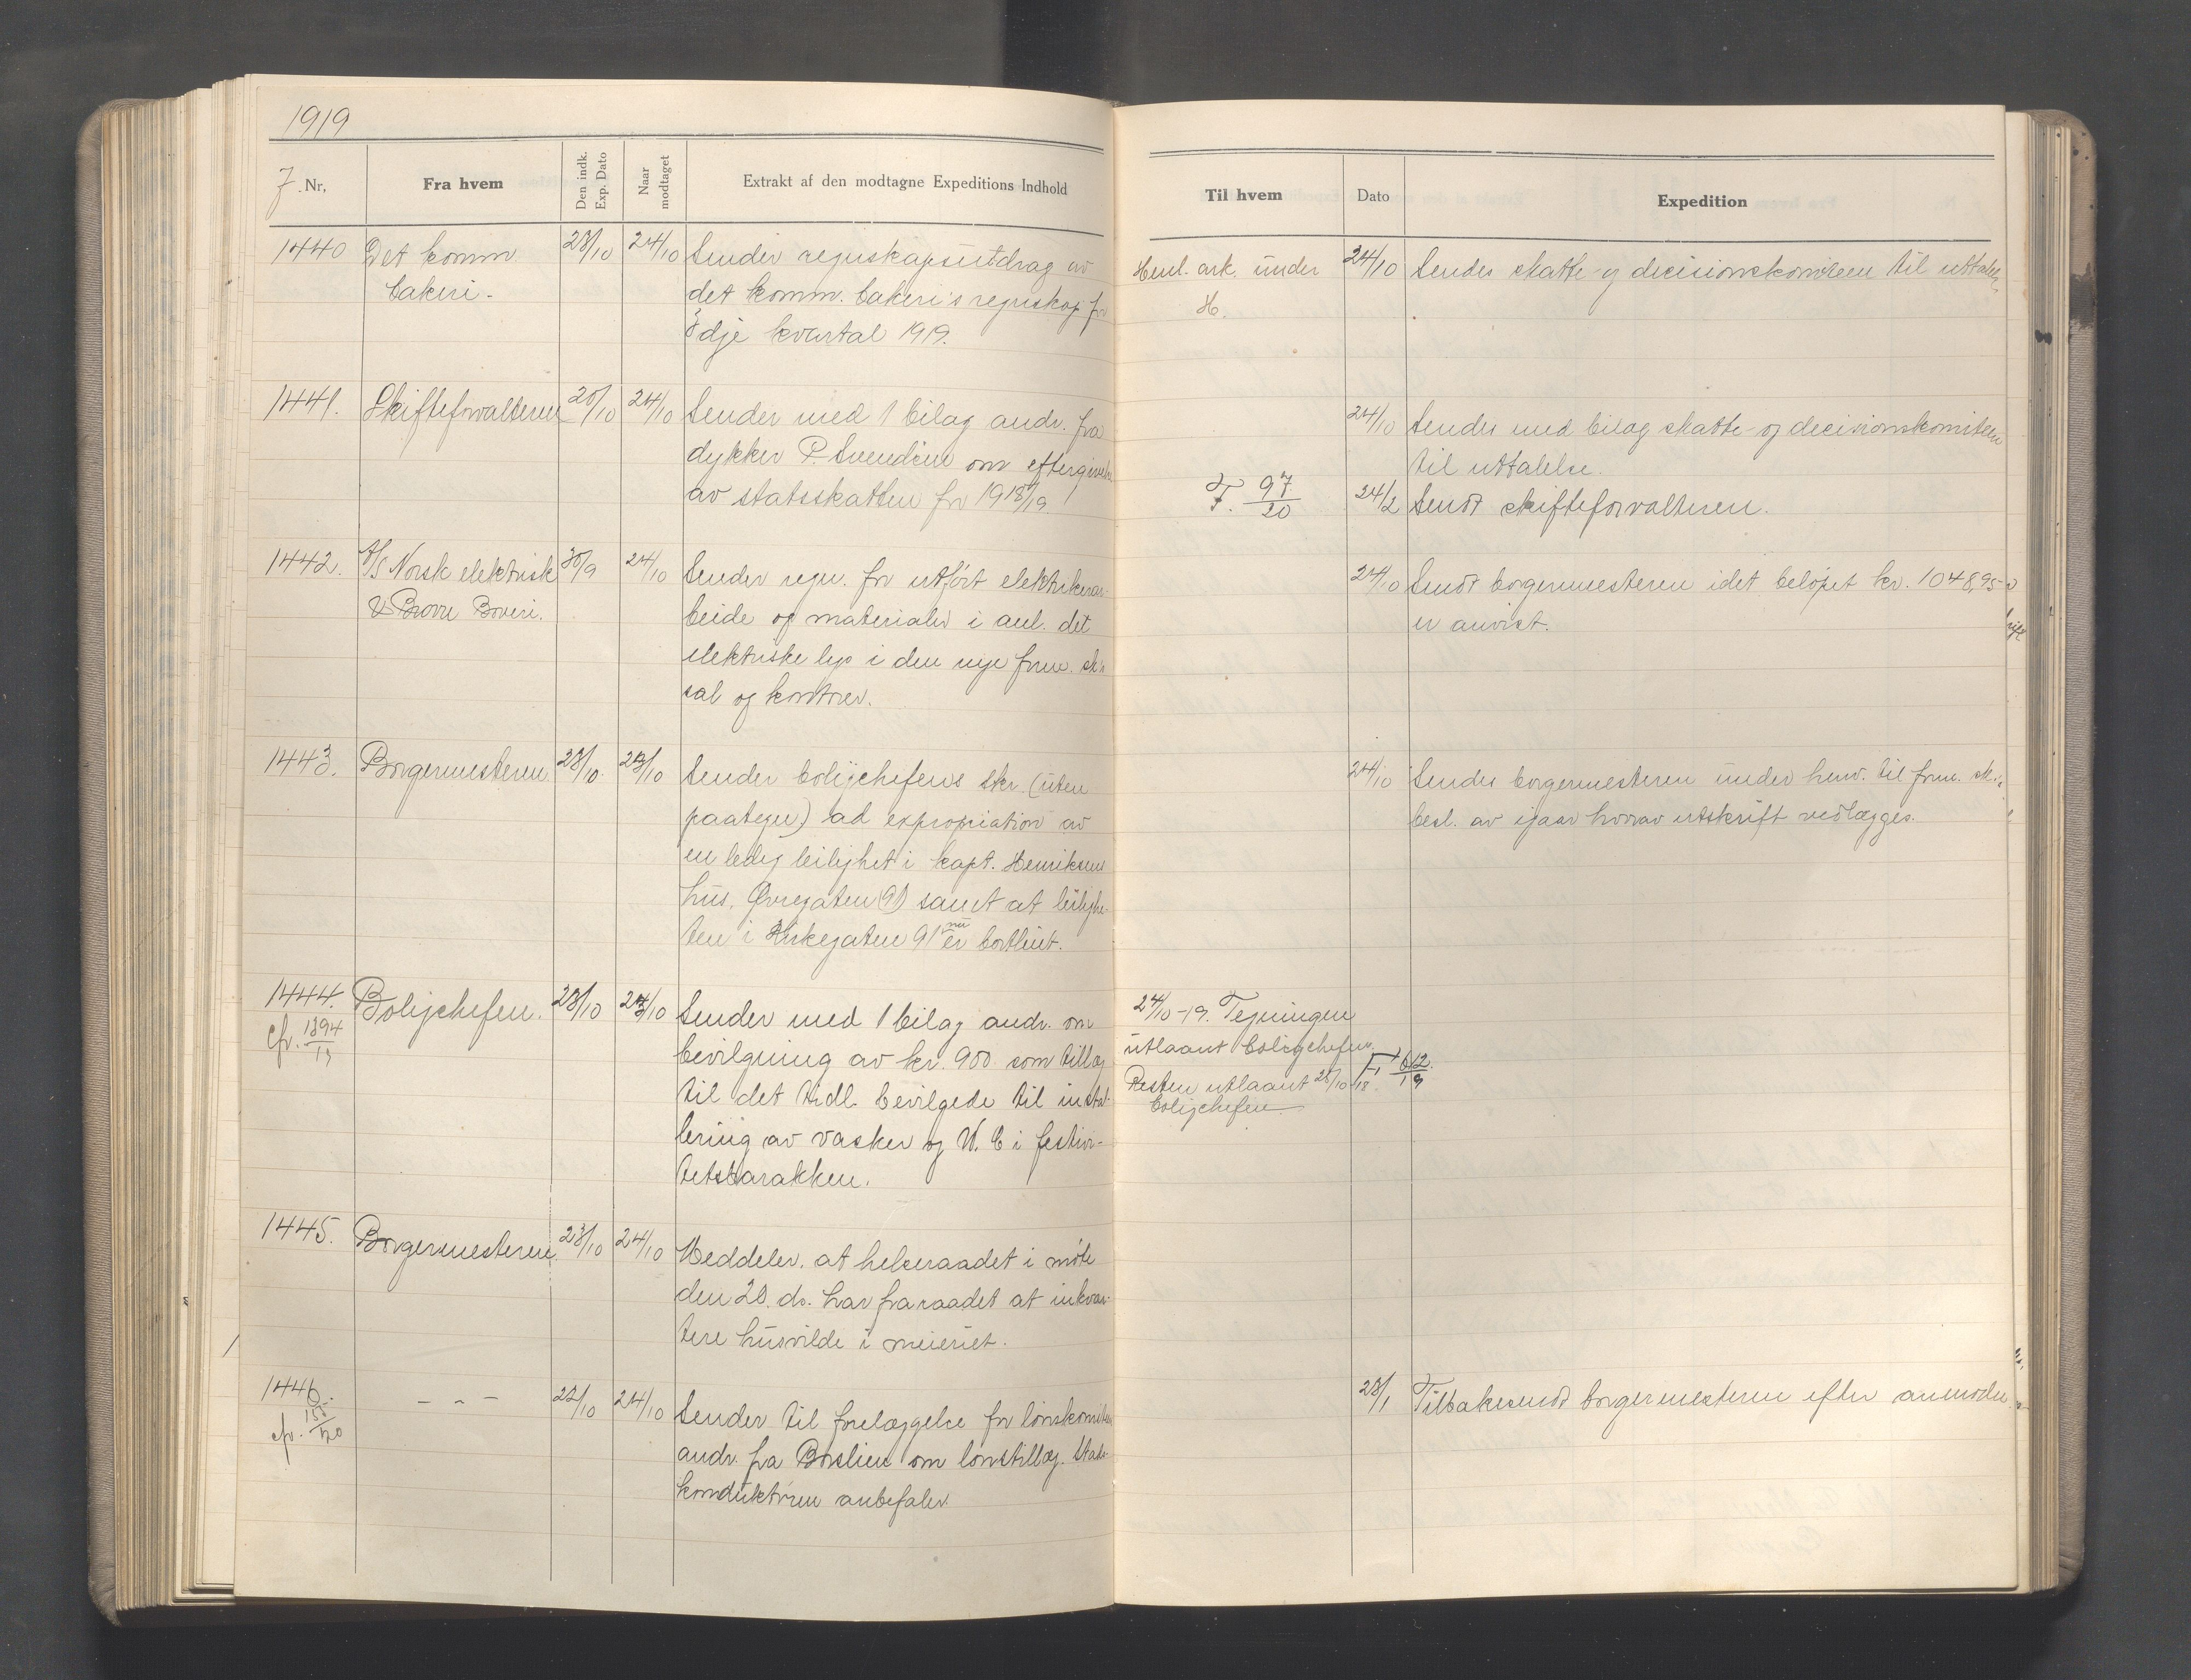 1919
J. Nr.
Fra hvem
Den indk. Exp. Dato
Naar modtaget
Extrakt af den modtagne Expeditions Indhold
Til hvem
Dato
Expedition
1440
Det komm
bakeri.
23/10
24/10
Sender regnskapsutdrag av
det komm. bakeri's regnskap for
3dje kvartal 1919.
Henl. ark. under
H.
24/10
Sendes skatte- og decisionskomiteen til uttalelse.
1441.
Skifteforvalteren
20/10
24/10
Sender med 1 bilag andr. fra
dykker P. Svendsen om eftergivelse
av statsskatten for 1918/19
24/10
Sendes med bilag skatte- og decisionskomiteen
til uttalelse.
F. 97/20
24/2
Sendt skifteforvalteren.
1442.
A/S Norsk elektrisk
& Brown Boveri.
30/9
24/10
Sender regn. for utført elektrikerar-
beide og materialer i anl. det
elektriske lys i den nye form. sk's
sal og kontorer.
24/10
Sendt borgermesteren idet beløpet kr. 1048,95
er anvist.
1443.
Borgermesteren
23/10.
23/10
Sender boligchefens skr. (uten
paategn.) ad expropriation av
en ledig leilighet i kapt. Henriksens
hus, Øvregaten (91) samt at leilighe-
ten i Kirkegaten 91 nu er bortleiet.
24/10
Sendes borgermesteren under henv. til form. sk.'s
besl. av igaar hvorav utskrift vedlægges.
1444.
cfr. 1394/19
Boligchefen.
23/10
24/10
Sender med 1 bilag andr. om
bevilgning av kr. 900 som tillæg
til det tidl. bevilgede til instal-
lering av vasker og W. C i festivi-
tetsbarakken.
24/10-19. Tegningen
utlaant boligchefen.
Resten utlaant 28/10 18.
boligchefen
F 612/19
1445.
Borgermesteren
23/10
24/10
Meddeler, at helseraadet i møte
den 20. ds. har fraraadet at inkvar-
tere husvilde i meieriet.
1446.
cfr. 155/20
- " -
22/10
24/10
Sender til forelæggelse for lønskomiteen
andr. fra Børslien om lønstillæg. Stads-
konduktøren anbefaler.
28/1
Tilbakesendt borgermesteren efter anmodn.